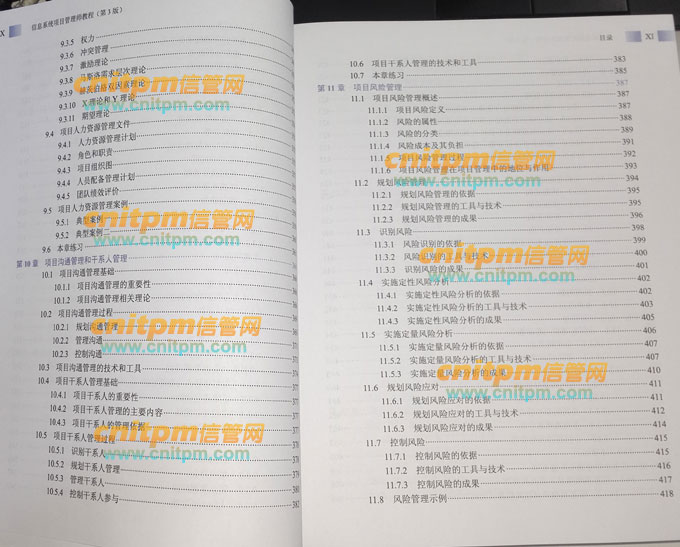 X 信息系统项目管理师教程（第 3 版）
9.3.5 权力
9.3.6 冲突管理
9.3.7 激励理论
9.3.8 马斯洛需求层次理论
9.3.9 赫茨伯格双因素理论
9.3.10 X 理论和 Y 理论
9.3.11 期望理论
9.4 项目人力资源管理文件
9.4.1 人力资源管理计划
9.4.2 角色和职责
9.4.3 项目组织图
9.4.4 人员配备管理计划
9.4.5 团队绩效评价
9.5 项目人力资源管理案例
9.5.1 典型案例
9.5.2 典型案例二
9.6 本章练习
第 10 章 项目沟通管理和干系人管理
10.1 项目沟通管理基础
10.1.1 项目沟通管理的重要性
10.1.2 项目沟通管理相关理论
10.2 项目沟通管理过程
10.2.1 规划沟通管理
10.2.2 管理沟通
10.2.3 控制沟通
10.3 项目沟通管理的技术和工具
10.4 项目干系人管理基础
10.4.1 项目干系人的重要性
10.4.2 项目干系人管理的主要内容
10.4.3 项目干系人的管理依据
10.5 项目干系人管理过程
10.5.1 识别干系人
10.5.2 规划干系人管理
10.5.3 管理干系人
10.5.4 控制干系人参与 382
cnitpm信管网
www.cnitpm.com
cnitpm信管网
www.cnitpm.com
cnitpm信管网
www.cnitpm.com
cnitpm信管网
www.cnitpm.com
目录 XI
10.6 项目干系人管理的技术和工具 383
10.7 本章练习 385
第 11 章 项目风险管理 387
11.1 项目风险管理概述 387
11.1.1 项目风险定义 387
11.1.2 风险的属性 388
11.1.3 风险的分类 389
11.1.4 风险成本及其负担 391
11.1.5 项目风险管理过程 392
11.1.6 项目风险管理在项目管理中的地位与作用 393
11.2 规划风险管理 394
11.2.1 规划风险管理的依据 395
11.2.2 规划风险管理的工具与技术 395
11.2.3 规划风险管理的成果 396
11.3 识别风险 398
11.3.1 风险识别的依据 399
11.3.2 风险识别的工具与技术 400
11.3.3 识别风险的成果 401
11.4 实施定性风险分析 402
11.4.1 实施定性风险分析的依据 402
11.4.2 实施定性风险分析的工具与技术 403
11.4.3 实施定性风险分析的成果 405
11.5 实施定量风险分析 406
11.5.1 实施定量风险分析的依据 407
11.5.2 实施定量风险分析的工具与技术 407
11.5.3 实施定量风险分析的成果 410
11.6 规划风险应对 411
11.6.1 规划风险应对的依据 411
11.6.2 规划风险应对的工具与技术 412
11.6.3 规划风险应对的成果 414
11.7 控制风险 415
11.7.1 控制风险的依据 415
11.7.2 控制风险的工具与技术 416
11.7.3 控制风险的成果 417
11.8 风险管理示例 418
cnitpm信管网
www.cnitpm.com
cnitpm信管网
www.cnitpm.com
cnitpm信管网
www.cnitpm.com